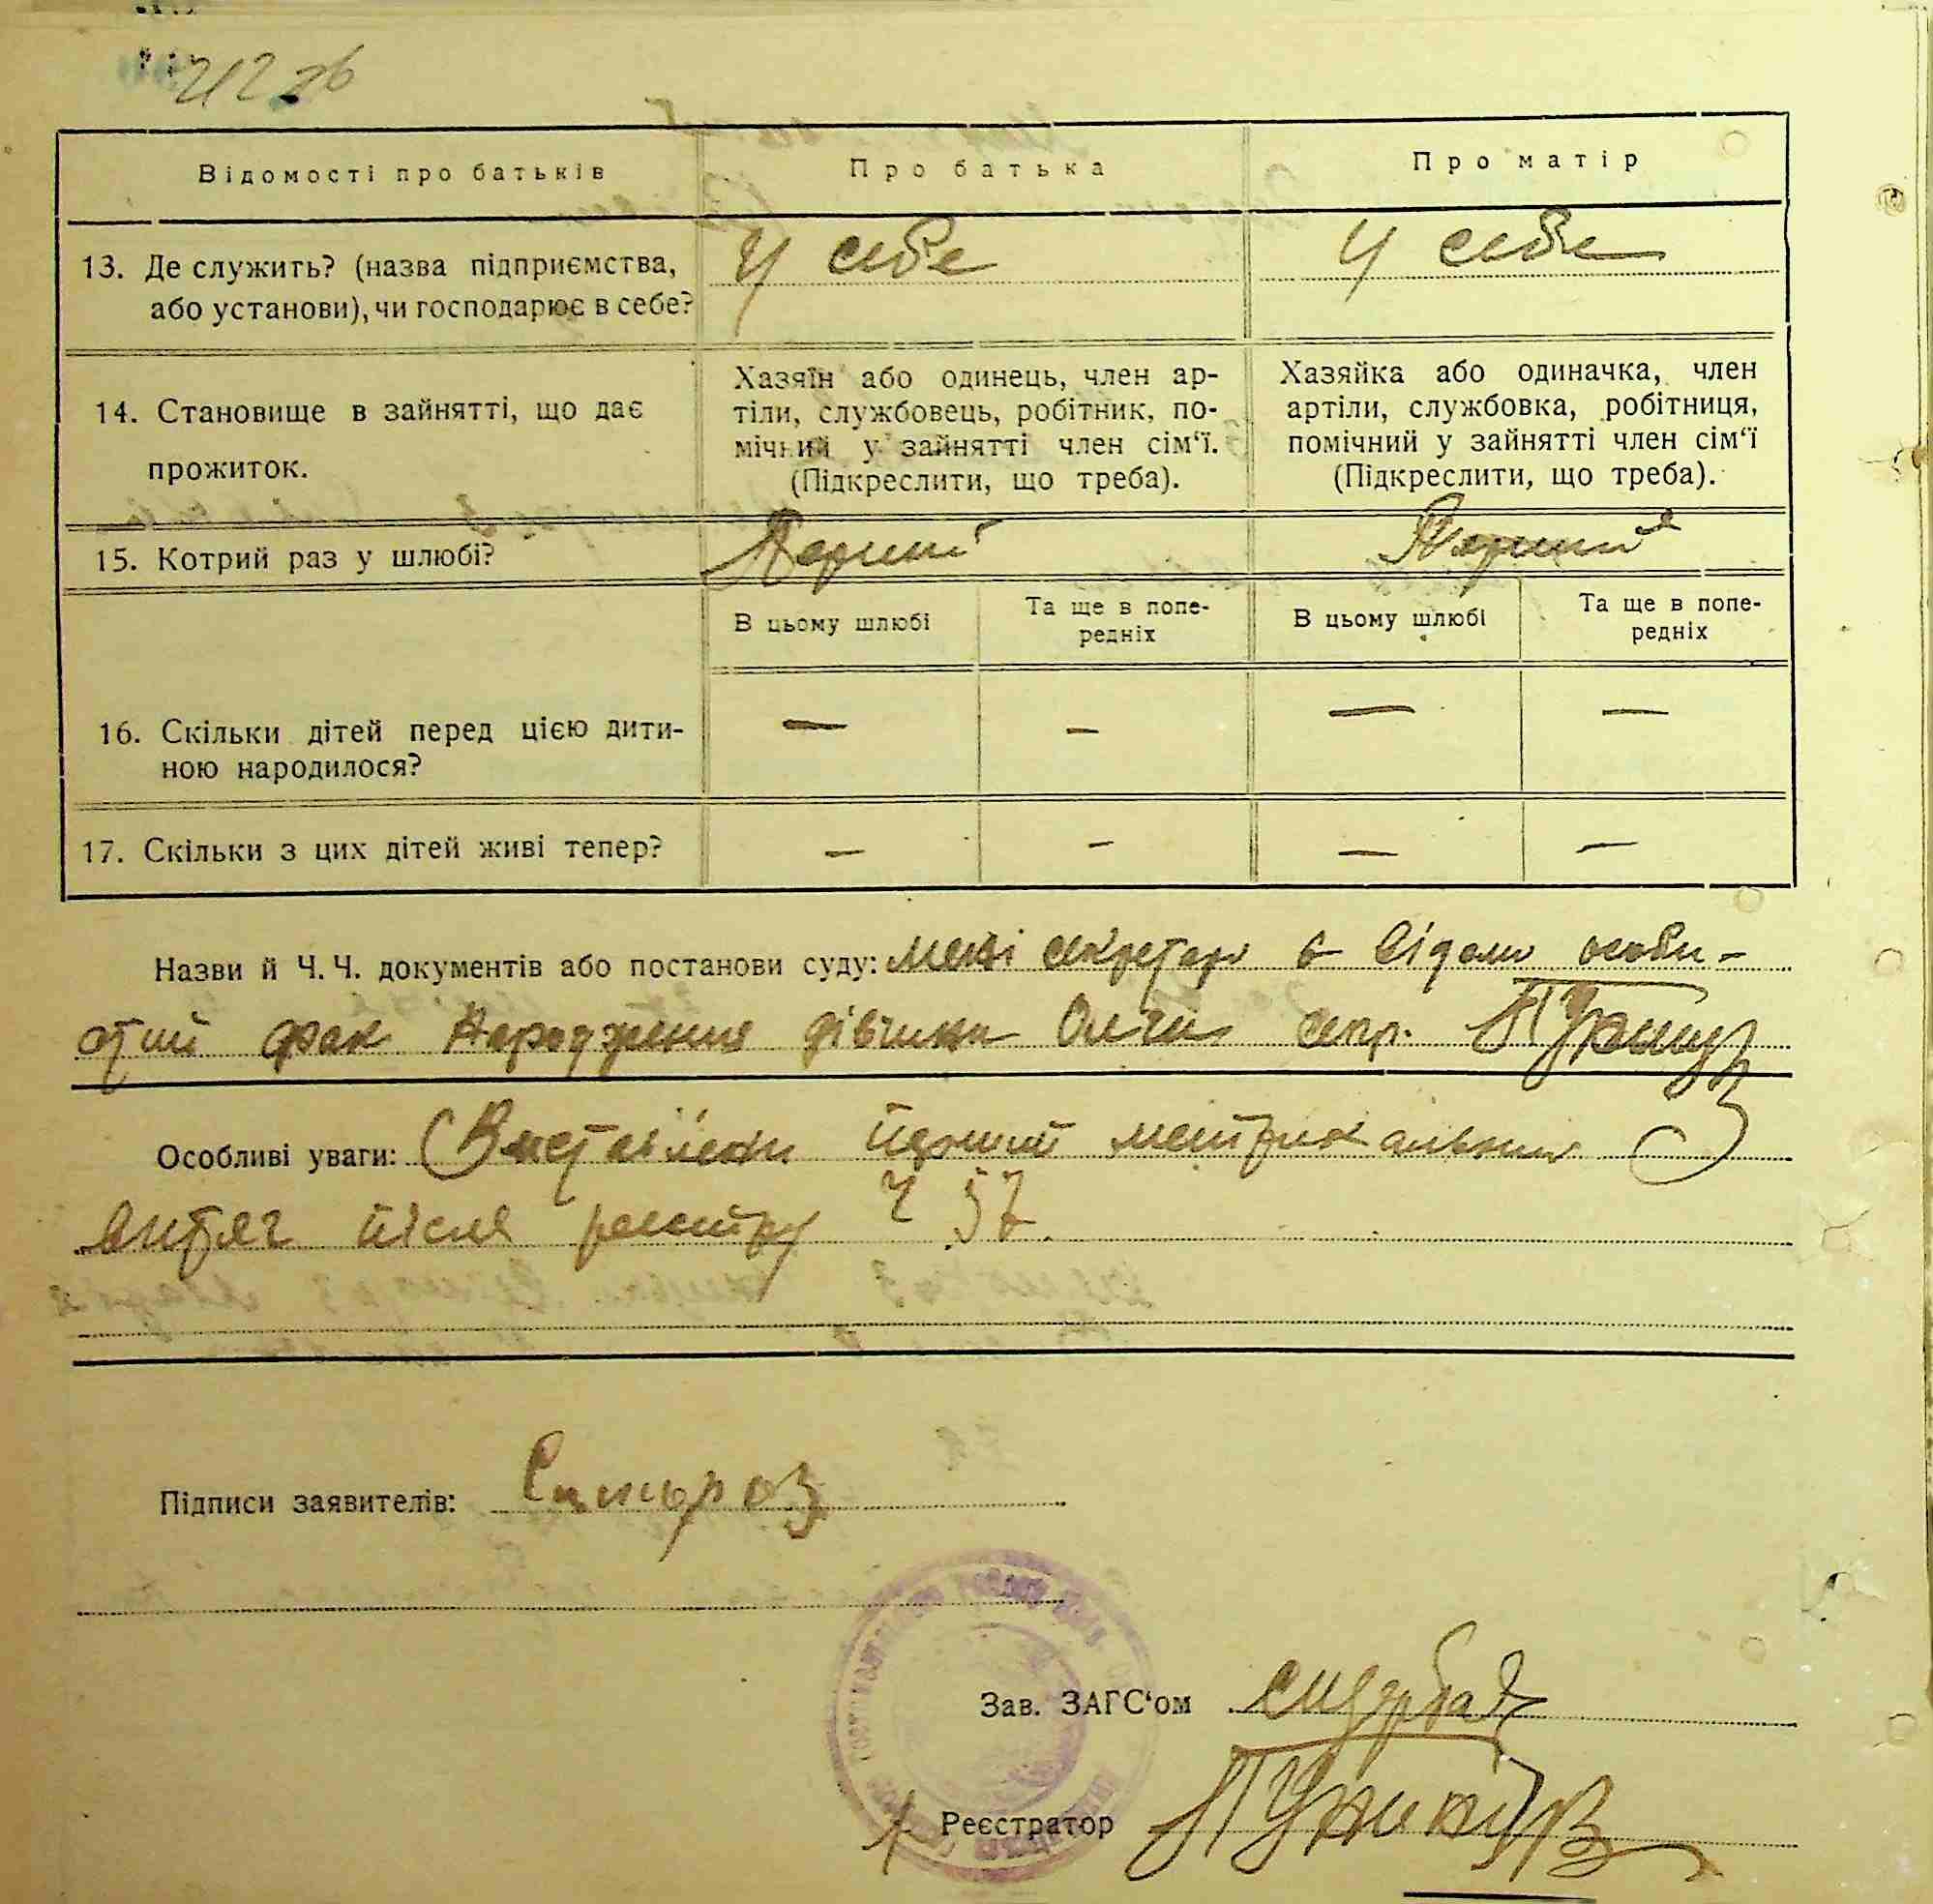 212 зв
Відомості про батьків Про батька Про матір
13. Де служить? (назва підприємства, або установи), чи господарює в себе? У себе У себе
14. Становище в зайнятті, що дає прожиток.
Хазяїн або одинець, член ар-
тіли, службовець, робітник, по-
мічний у зайнятті член сім‘ї.
(Підкреслити, що треба).
Хазяйка або одиначка, член
артіли, службовка, робітниця,
помічний у зайнятті член сім‘ї
(Підкреслити, що треба).
15. Котрий раз у шлюбі? Перший Перший
В цьому шлюбі Та ще в попе-
редніх В цьому шлюбі Та ще в попе-
редніх
16. Скільки дітей перед цією дити- — — — —
ною народилося?
17. Скільки з цих дітей живі тепер? — — — —
Назви й Ч. Ч. документів або постанови суду: мені секретарю є відомо особи-
стий фак народження дівчини Ольги секр.
Особливі уваги: Виставлени метрикальний
витяг після реєстру Ч 57.
Підписи заявителів:
Зав. ЗАГС‘ом
Реєстратор